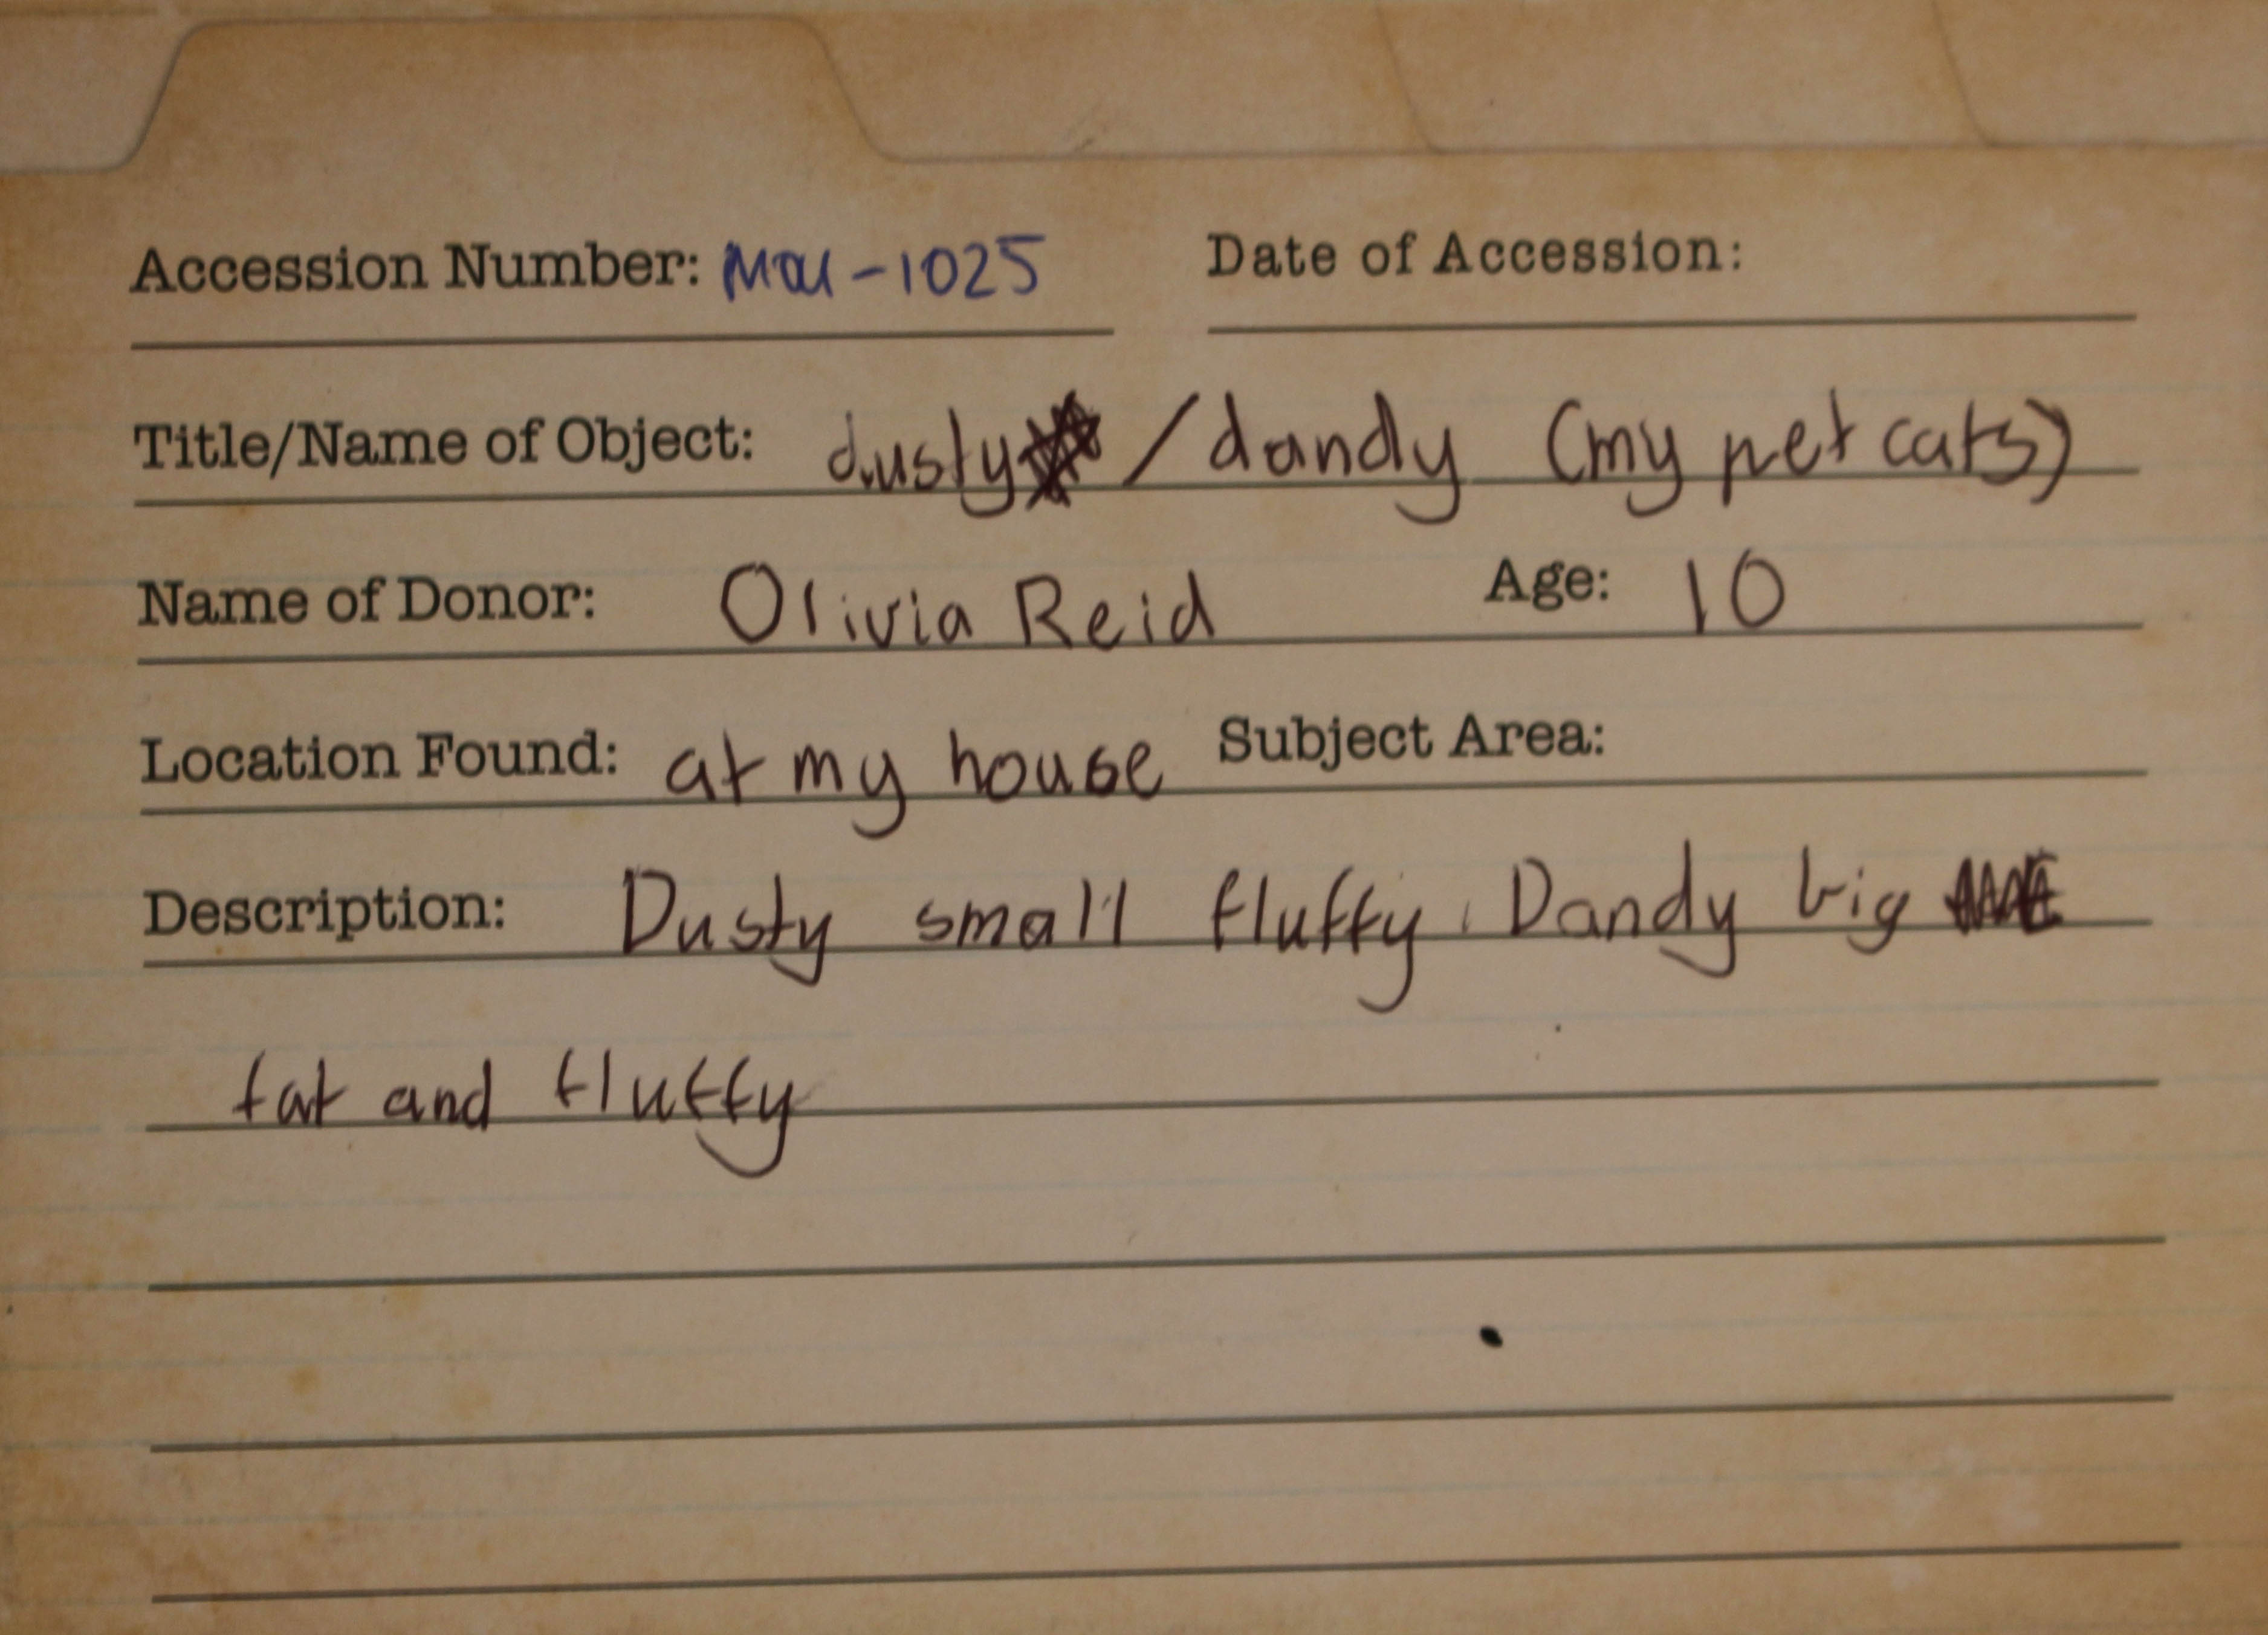 Accession Number: MOU-1025 Date of Accession:
Title/Name of Object: dusty / dandy (my pet cats)
Name of Donor: Olivia Reid Age: 10
Location Found: at my house Subject Area:
Description: Dusty small fluffy. Dandy big
fat and fluffy